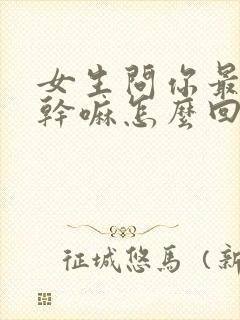 女生問你最
幹嘛怎麼回
征城悠馬（新